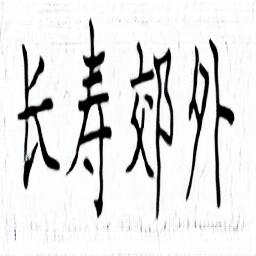 长寿郊外